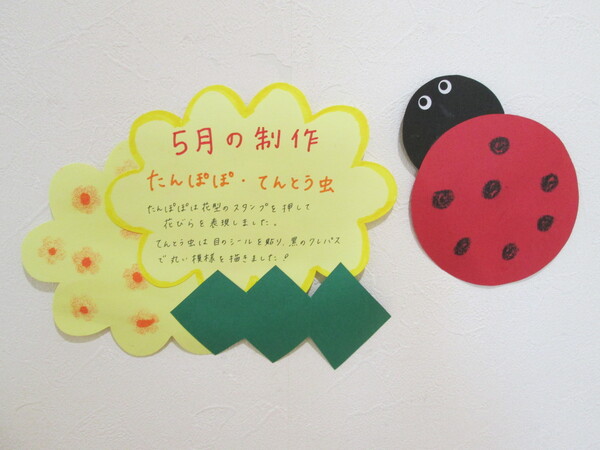 5月の制作
たんぽぽ・てんとう虫
たんぽぽは花型のスタンプを押して
花びらを表現しました。
てんとう虫は目のシールを貼り、黒のクレパス
で丸い模様を描きました！